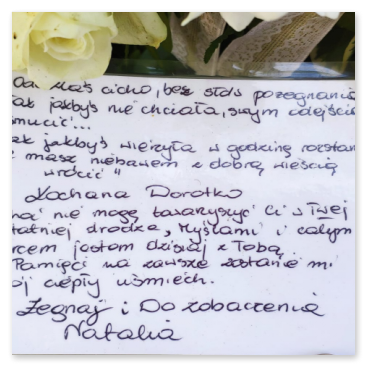 cicho, bez słów pożegnania
jak jakbyś nie chciała, swym odejściem
smucić...
ak jakbyś wierzyła w godzinę rozstan
masz niebawem z dobrą wieścią
wrócić"
Kochana Dorotko
nie mogę towarzyszyć Ci w Twej
tatniej drodze, myślami i całym
rcem jestem dzisiaj z Tobą
Pamięci na zawsze zostanie mi
ój ciepły uśmiech.
Żegnaj i Do zobaczenia
Natalia